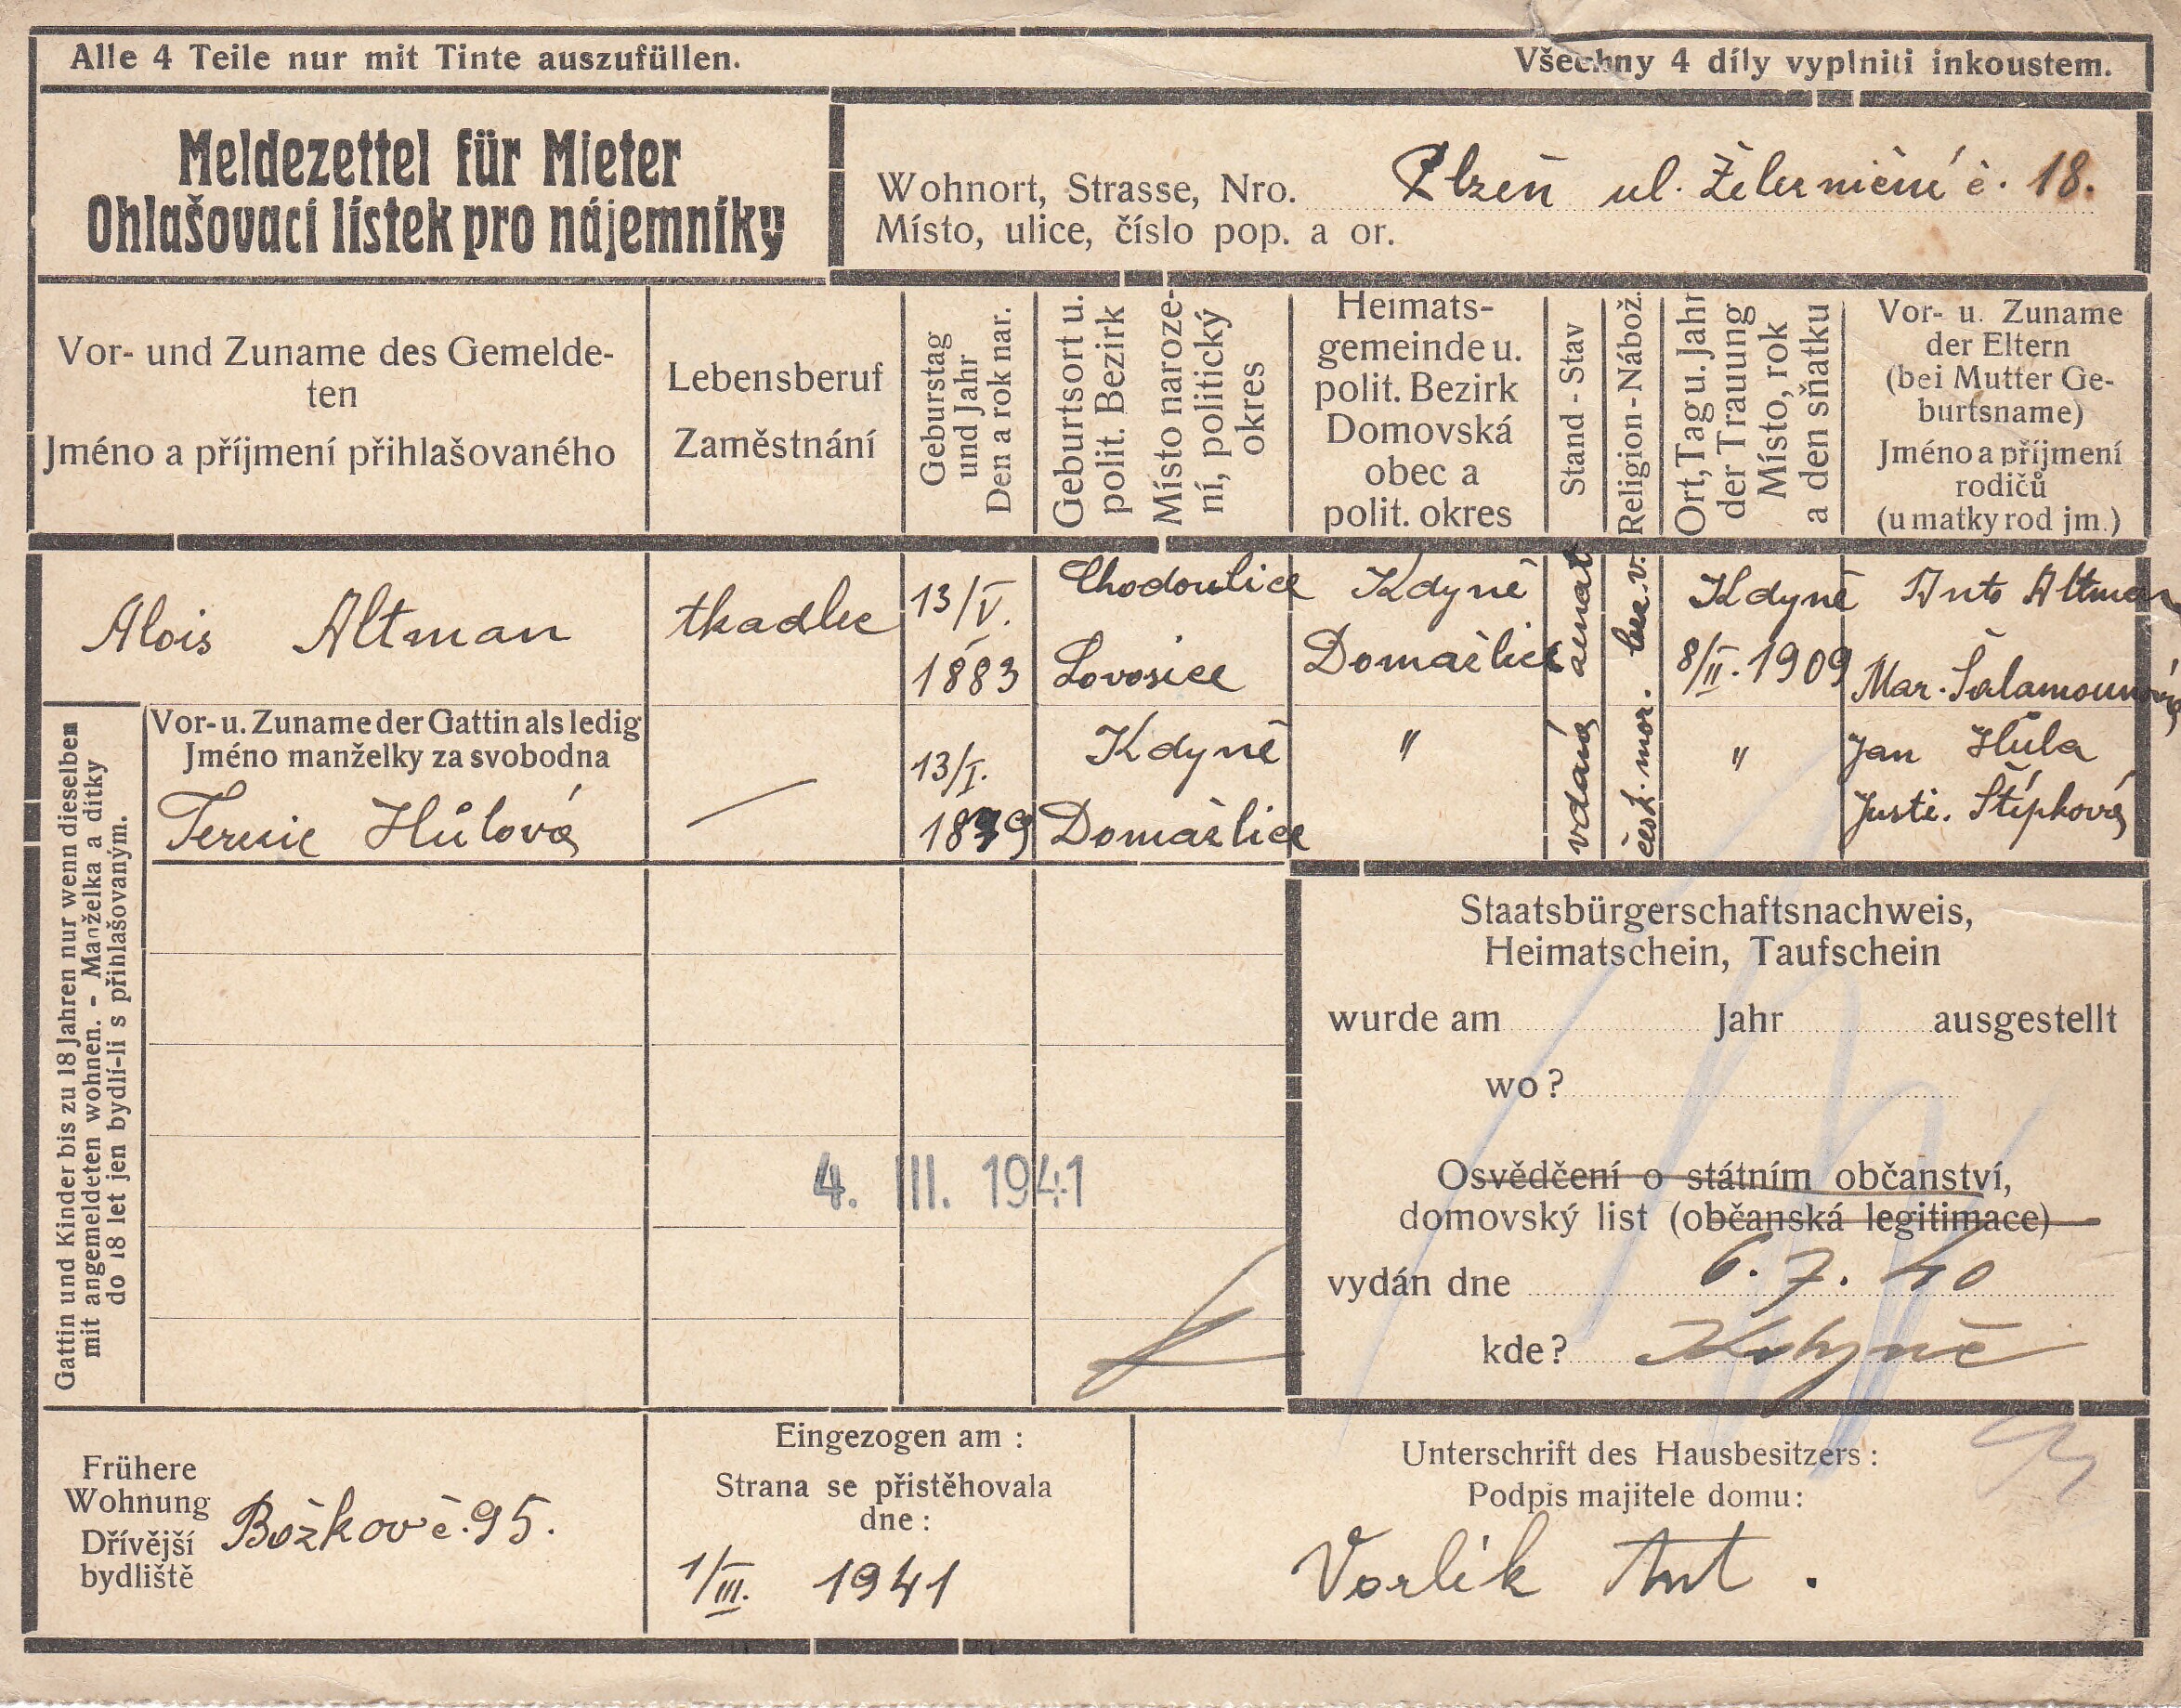 Alle 4 Teile nur mit Tinte auszufüllen.
Všechny 4 díly vyplniti inkoustem.
Meldezettel für Mieter
Ohlašovací lístek pro nájemníky
Wohnort, Strasse, Nro.
Místo, ulice, číslo pop. a or.
Plzeň ul. Železniční č. 18.
Vor- und Zuname des Gemelde-
ten
Jméno a příjmení přihlašovaného
Lebensberuf
Zaměstnání
Geburstag
und Jahr
Den a rok nar.
Geburtsort u.
polit. Bezirk
Místo naroze-
ní, politický
okres
Heimats-
gemeinde u.
polit. Bezirk
Domovská
obec a
polit. okres
Stand - Stav
Religion - Nábož.
Ort, Tag u. Jahr
der Trauung
Místo, rok
a den sňatku
Vor- u. Zuname
der Eltern
(bei Mutter Ge-
burtsname)
Jméno a příjmení
rodičů
(u matky rod jm.)
Alois Altman
tkadlec
13/V.
1883
Chodoulice
Lovosice
Kdyně
Domažlice
ženat
bez. v.
Kdyně
8/II. 1909
Anto Altman
Mar. Šalamounová
Gattin und Kinder bis zu 18 Jahren nur wenn dieselben
mit angemeldeten wohnen. - Manželka a dítky
do 18 let jen bydlí-li s přihlašovaným.
Vor- u. Zuname der Gattin als ledig
Jméno manželky za svobodna
Terezie Hůlová
—
13/I.
Kdyně
Domažlice
"
vdaná
česk. mor.
"
Jan Hůla
Justi. Štípková
4. III. 1941
Staatsbürgerschaftsnachweis,
Heimatschein, Taufschein
wurde am Jahr ausgestellt
wo?
Osvědčení o státním občanství,
domovský list (občanská legitimace)
vydán dne 6. 7. 40
kde? Kdyně
Frühere
Wohnung
Dřívější
bydliště
Božkov č. 95.
Eingezogen am :
Strana se přistěhovala
dne :
1/III. 1941
Unterschrift des Hausbesitzers :
Podpis majitele domu :
Vorlík Ant .